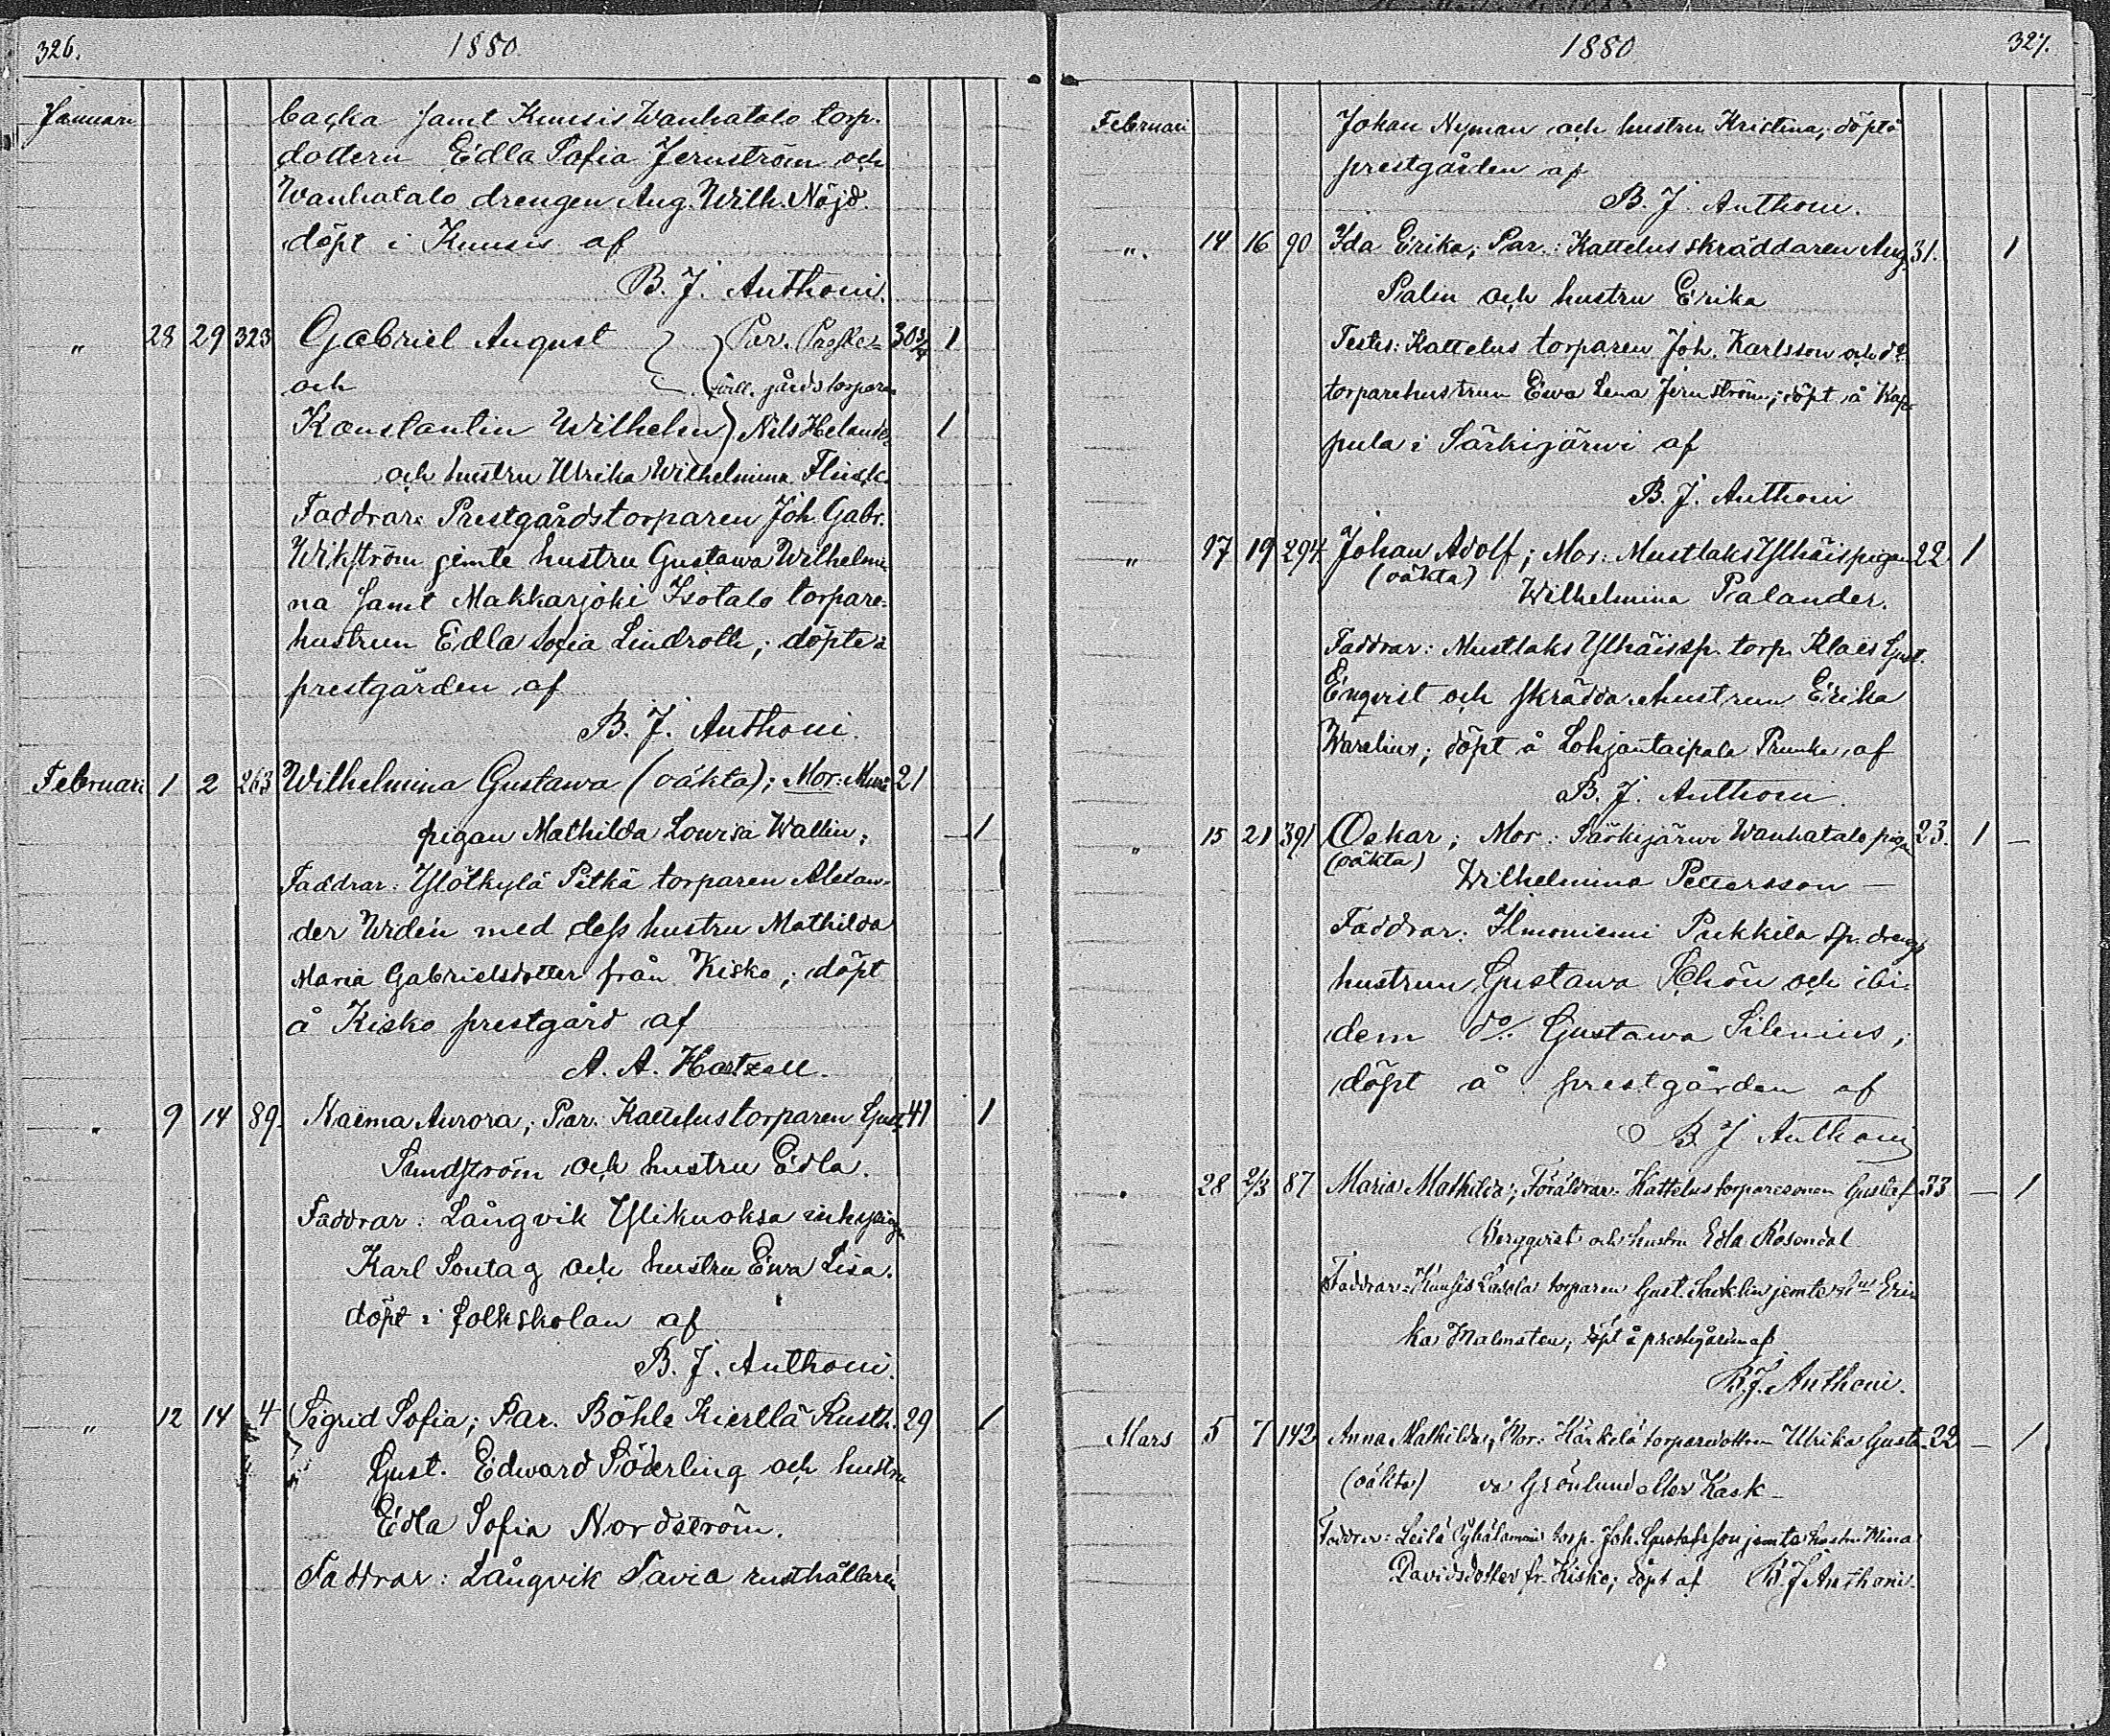 326. 1880
Januari backa samt Kuusis Wanhatalo torp.
dottern Edla Sofia Jernström och
Wanhatalo drengen Aug. Wilh. Nöjd.
döpt i Kuusis af
B. J. Anthoni.
" 28 29 323 Gabriel August Par. 30 3/4 1
och gårdstorparen
Konstantin Wilhelm Nils Helander 1
och hustru Ulrika Wilhelmina Flinck.
Faddrar: Prestgårdstorparen Joh. Gabr.
Wikström jemte hustru Gustawa Wilhelmi-
na samt Makkarjoki Isotalo torpare-
hustrun Edla Sofia Lindroth; döpte å
prestgården af
B. J. Anthoni.
Februari 1 2 263 Wilhelmina Gustawa (oäkta); Mor: 21
pigan Mathilda Lowisa Wallin; 1
Faddrar: Ylötkylä Pitkä torparen Alexan-
der Widén med dess hustru Mathilda
Maria Gabrielsdotter från Kisko; döpt
å Kisko prestgård af
A. A. Hartzell.
" 9 14 89. Naëma Aurora; Par. Kattelus torparen Gust. 41 1
Sundström och hustru Edla.
Faddrar: Långvik Ylikuoksa
Karl Sontag och hustru Ewa Lisa.
döpt i folkskolan af
B. J. Anthoni.
" 12 14 4 Sigrid Sofia; Par. Böhle Kierllä Rusth. 29 1
Gust. Edward Söderling och hustru
Edla Sofia Nordström.
Faddrar: Långvik Tavia rusthållaren
1880 327.
Februari Johan Nyman och hustru Kristina; döpt å
prestgården af
B. J. Anthoni.
" 14 16 90 Ida Erika; Par.: Kattelus skräddaren Aug. 31. 1
Palin och hustru Erika
Testes: Kattelus torparen Joh. Karlsson och do
torparehustrun Ewa Lena Jernström; döpt å Kap-
pula i Särkijärwi af
B. J. Anthoni
" 17 19 294. Johan Adolf; Mor: Mustlaks Ylhäis pigan 22. 1
(oäkta) Wilhelmina Palander.
Faddrar: Mustlaks Ylhäis sp. torp. Klaës Gust.
Enqvist och skräddarehustrun Erika
Warelius; döpt å Lohjantaipale Prunke af
B. J. Anthoni.
" 15 21 391 Oskar; Mor: Särkijärwi Wanhatalo pigan 23. 1 —
(oäkta) Wilhelmina Pettersson —
Faddrar: Ilmoniemi Pukkila sp. drengs
hustrun Gustawa Schön och ibi-
dem do Gustawa Silenius;
döpt å prestgården af
B. J. Anthoni
" 28 2/3 87 Maria Mathilda; Föräldrar: Kattelus torparesonen Gustaf 33 — 1
Bergqvist och hustru Edla Rosendal
Faddrar: Kuusis Laddla torparen Gust. Sacklin jemte hu Eri-
ka Malmsten; döpt å prestgården af
B. J. Anthoni.
Mars 5 7 142 Anna Mathilda; Mor: Härkelä torparedottern Ulrika Gusta- 22 — 1
(oäkta) va Grönlund eller Kask
Faddrar: Leilä torp. Joh. Gustafsson jemte hustru Mina
Davidsdotter fr. Kisko; döpt af B. J. Anthoni.